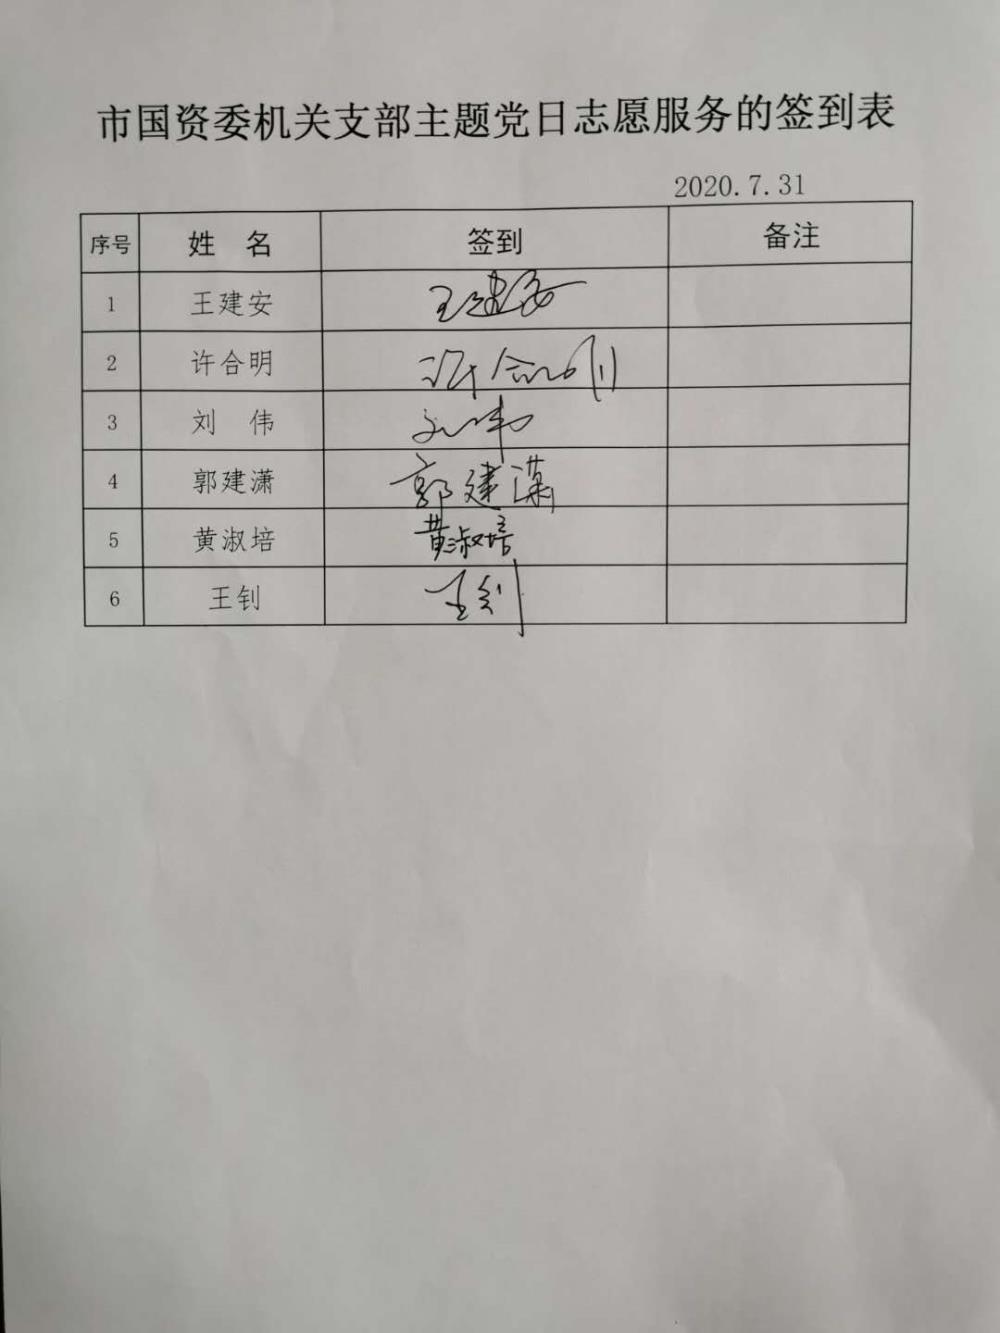 市国资委机关支部主题党日志愿服务的签到表
2020.7.31
序号 姓 名 签到 备注
1 王建安 王建安
2 许合明 许合明
3 刘 伟 刘伟
4 郭建潇 郭建潇
5 黄淑培 黄淑培
6 王钊 王钊